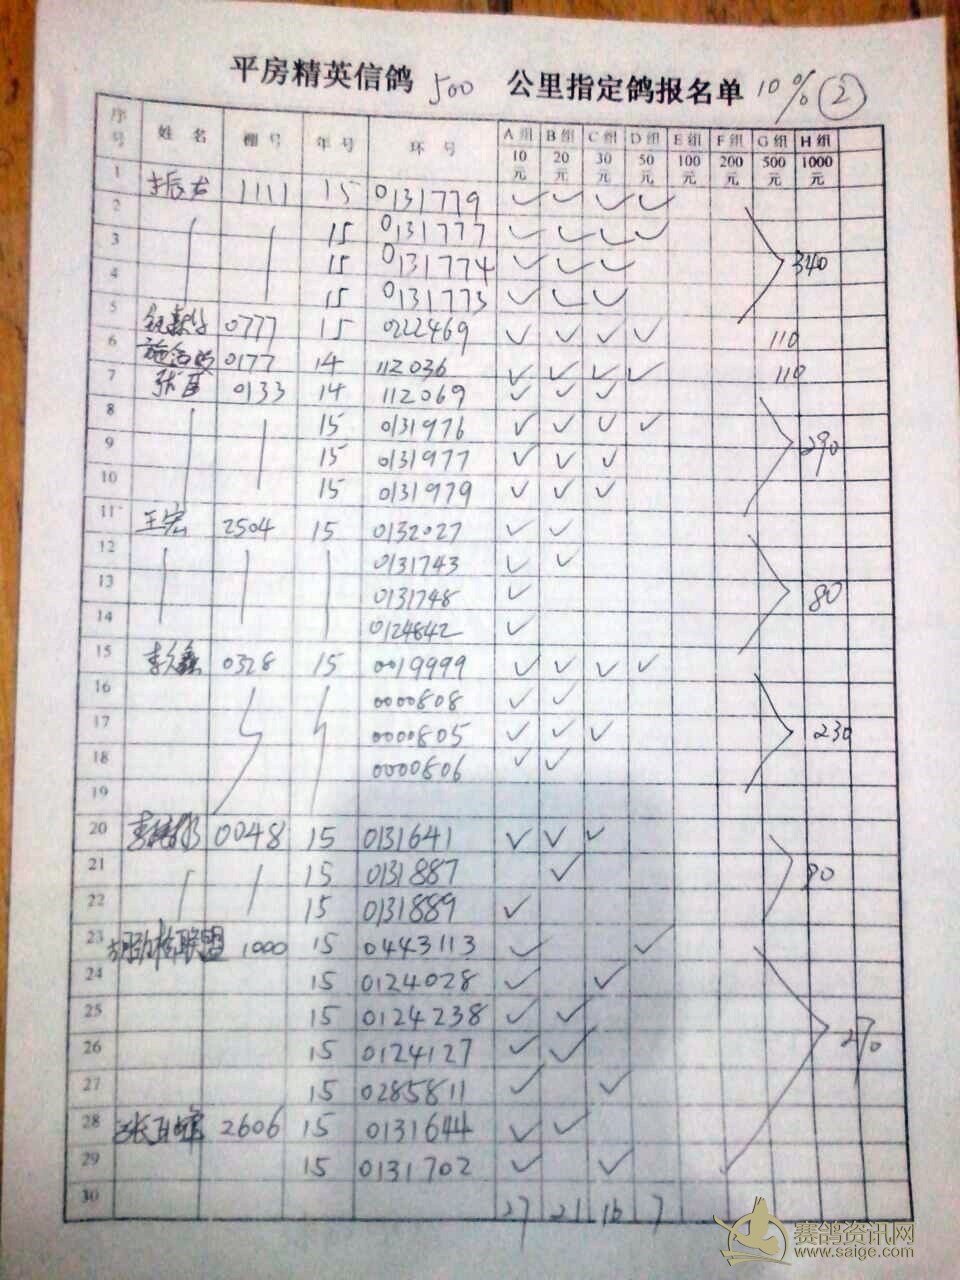 平房精英信鸽 500 公里指定鸽报名单 10% ②
序号 姓 名 棚 号 年 号 环 号 A组 10元 B组 20元 C组 30元 D组 50元 E组 100元 F组 200元 G组 500元 H组 1000元
1 1111 15 0131779 ✓ ✓ ✓ ✓
2 15 0131777 ✓ ✓ ✓ ✓
3 15 0131774 ✓ ✓ ✓ 340
4 15 0131773 ✓ ✓ ✓
5 0777 15 0222469 ✓ ✓ ✓ ✓ 110
6 0177 14 112036 ✓ ✓ ✓ ✓ 110
7 0133 14 112069 ✓ ✓ ✓
8 15 0131976 ✓ ✓ ✓ ✓
9 15 0131977 ✓ ✓ ✓ 290
10 15 0131979 ✓ ✓ ✓
11 王宏 2504 15 0132027 ✓ ✓
12 0131743 ✓ ✓
13 0131748 ✓ 80
14 0124842 ✓
15 0328 15 0019999 ✓ ✓ ✓ ✓
16 0000808 ✓ ✓
17 0000805 ✓ ✓ ✓ 230
18 0000806 ✓ ✓
19
20 0048 15 0131641 ✓ ✓ ✓
21 15 0131887 ✓ 90
22 15 0131889 ✓
23 1000 15 0443113 ✓ ✓
24 15 0124028 ✓ ✓
25 15 0124238 ✓ ✓
26 15 0124127 ✓ ✓ 270
27 15 0285811 ✓ ✓
28 2606 15 0131644 ✓ ✓
29 15 0131702 ✓ ✓
30 27 21 16 7
赛鸽资讯网
www.saige.com